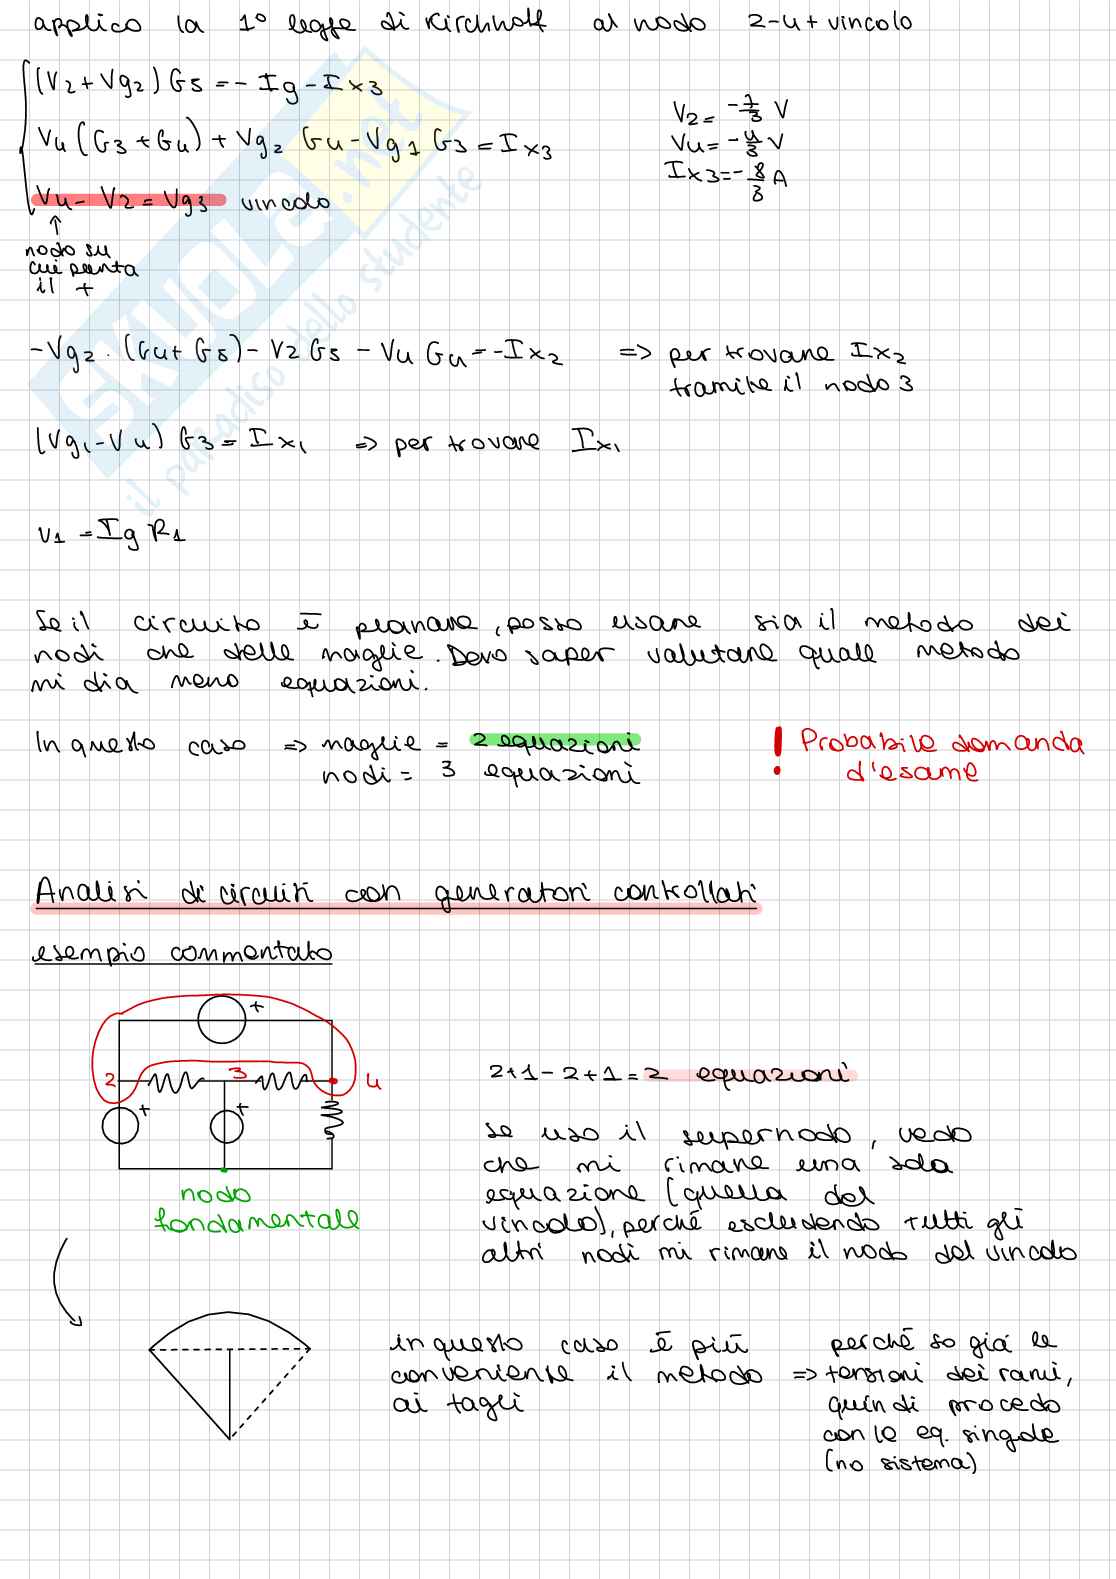 applico la 1° legge di Kirchhoff al nodo 2-4 + vincolo
(V2 + Vg2) G5 = - Ig - Ix3
V4 (G3 + G4) + Vg2 G4 - Vg1 G3 = Ix3
V4 - V2 = Vg3 vincolo
↑
nodo su
cui punta
il +
V2 = -7/3 V
V4 = -4/3 V
Ix3 = -8/3 A
-Vg2 · (G4 + G5) - V2 G5 - V4 G4 = - Ix2 => per trovare Ix2
tramite il nodo 3
(Vg1 - V4) G3 = Ix1 => per trovare Ix1
V1 = Ig R1
Se il circuito è planare, posso usare sia il metodo dei
nodi che delle maglie. Devo saper valutare quale metodo
mi dia meno equazioni.
In questo caso => maglie = 2 equazioni
nodi = 3 equazioni
! Probabile domanda
d'esame
Analisi di circuiti con generatori controllati
esempio commentato
+
2 3 4
+ +
nodo
fondamentale
2+1-2+1=2 equazioni
se uso il supernodo, vedo
che mi rimane una sola
equazione (quella del
vincolo), perché escludendo tutti gli
altri nodi mi rimane il nodo del vincolo
in questo caso è più
conveniente il metodo
ai tagli
=> perché so già le
tensioni dei rami,
quindi procedo
con le eq. singole
(no sistema)
SKUOLA.net
il paradiso dello studente